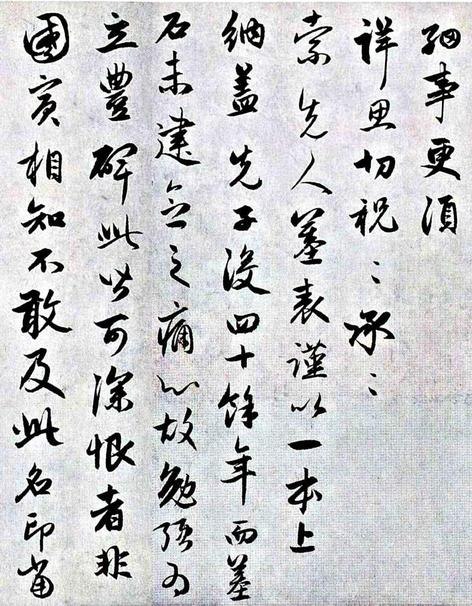 細事更須
詳思切祝〻承〻
索先人墓表謹以一本上
納蓋先子沒四十餘年而墓
石未建念之痛心故勉強為
立豐碑此皆可深恨者非
國賓相知不敢及此名印當